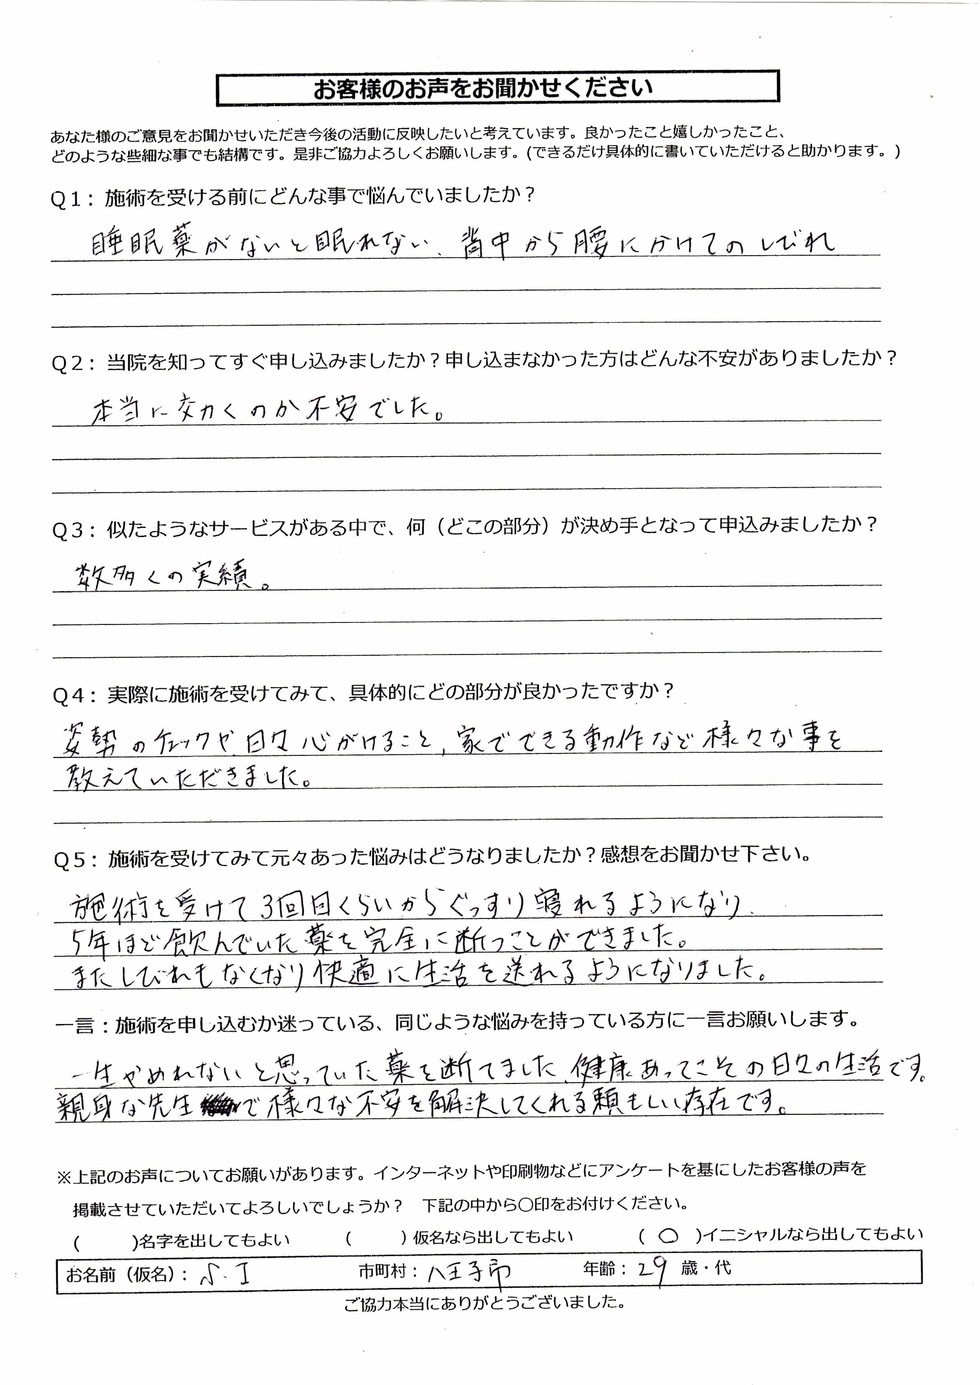 お客様のお声をお聞かせください
あなた様のご意見をお聞かせいただき今後の活動に反映したいと考えています。良かったこと嬉しかったこと、
どのような些細な事でも結構です。是非ご協力よろしくお願いします。(できるだけ具体的に書いていただけると助かります。)
Q1：施術を受ける前にどんな事で悩んでいましたか？
睡眠薬がないと眠れない、背中から腰にかけてのしびれ
Q2：当院を知ってすぐ申し込みましたか？申し込まなかった方はどんな不安がありましたか？
本当に効くのか不安でした。
Q3：似たようなサービスがある中で、何（どこの部分）が決め手となって申込みましたか？
数多くの実績。
Q4：実際に施術を受けてみて、具体的にどの部分が良かったですか？
姿勢のチェックや日々心がけること、家でできる動作など様々な事を
教えていただきました。
Q5：施術を受けてみて元々あった悩みはどうなりましたか？感想をお聞かせ下さい。
施術を受けて3回目くらいからぐっすり寝れるようになり、
5年ほど飲んでいた薬を完全に断つことができました。
またしびれもなくなり快適に生活を送れるようになりました。
一言：施術を申し込むか迷っている、同じような悩みを持っている方に一言お願いします。
一生やめれないと思っていた薬を断てました、健康あってこその日々の生活です。
親身な先生で様々な不安を解決してくれる頼もしい存在です。
※上記のお声についてお願いがあります。インターネットや印刷物などにアンケートを基にしたお客様の声を
掲載させていただいてよろしいでしょうか？　下記の中から〇印をお付けください。
(　　)名字を出してもよい　(　　)仮名なら出してもよい　(　〇　)イニシャルなら出してもよい
お名前（仮名）：　市町村：八王子市　年齢：29歳・代
ご協力本当にありがとうございました。